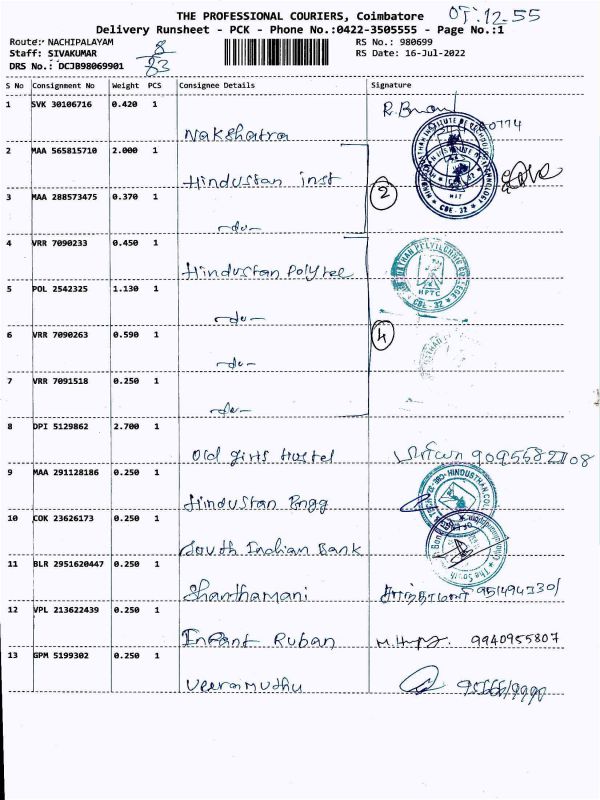 THE PROFESSIONAL COURIERS, Coimbatore
Delivery Runsheet - PCK - Phone No.:0422-3505555 - Page No.:1
Route: NACHIPALAYAM RS No.: 980699
Staff: SIVAKUMAR RS Date: 16-Jul-2022
DRS No.: DCJB98069901
8
83
S No Consignment No Weight PCS Consignee Details Signature
1 SVK 30106716 0.420 1
Nakshatra
2 MAA 565815710 2.000 1
Hindustan inst
3 MAA 288573475 0.370 1 2
-do-
4 VRR 7090233 0.450 1
Hindustan Polytec
5 POL 2542325 1.130 1
-do-
6 VRR 7090263 0.590 1 4
-do-
7 VRR 7091518 0.250 1
-do-
8 DPI 5129862 2.700 1
Old girls Hostel
9 MAA 291128186 0.250 1
Hindustan Engg
10 COK 23626173 0.250 1
South Indian Bank
11 BLR 2951620447 0.250 1
Shanthamani
12 VPL 213622439 0.250 1
Infant Ruban 9940955807
13 GPM 5199302 0.250 1
Veeramuthu